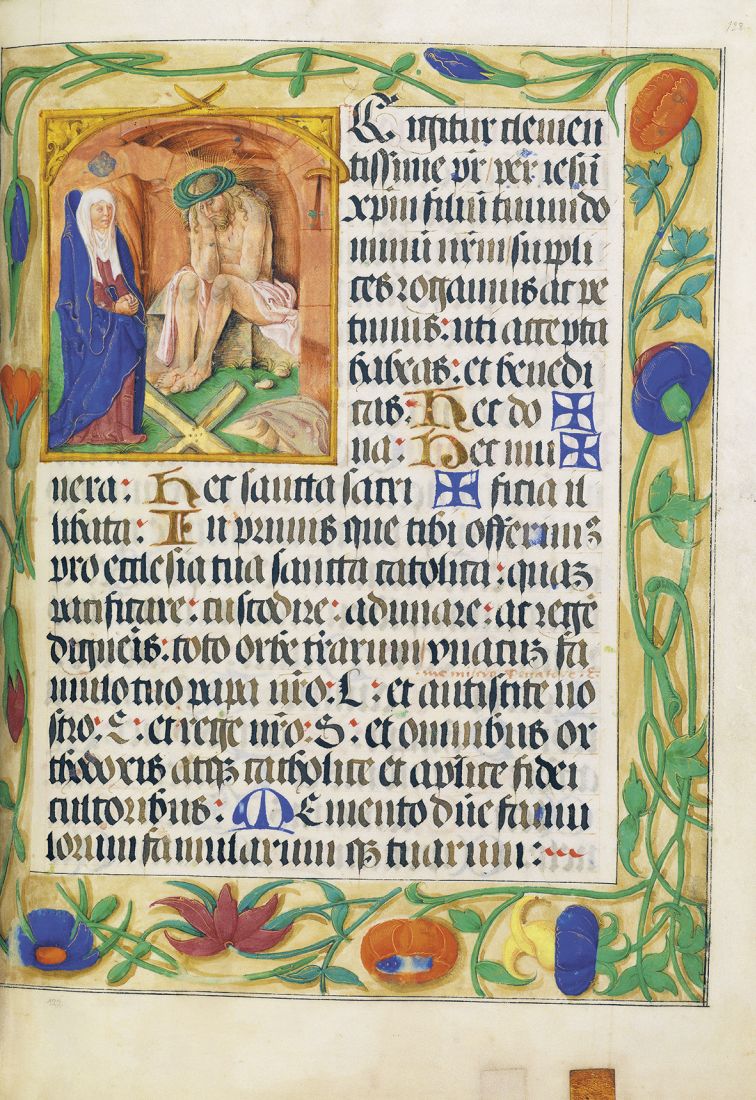 122
E igitur clemen
tissime pr̄ per iesū
xp̄m filiū tuum do
minū nr̄m suppli
ces rogamus ac pe
timus: uti accepta
habeas: et benedi
cas: Hec do ✠
na: Hec mu ✠
nera: Hec sancta sacri ✠ ficia il
libata: In primis que tibi offerimus
pro ecclesia tua sancta catolica: quaz
pacificare: custodire: adunare: ac rege
digneris: toto orbe tr̄arum vna cuz fa
mulo tuo papa nr̄o: L: et antistite no
stro: C: et rege nr̄o: S: et omnibus or
thodoxis atqz catholice et aplice fidei
cultoribus: Memento dn̄e famu
lorum famularum qz tuarum:
122